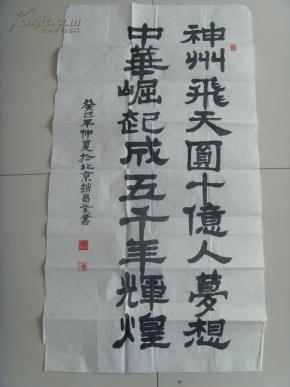 神州飛天圓十億人夢想
中華崛起成五千年輝煌
癸巳年仲夏於北京趙昌業書